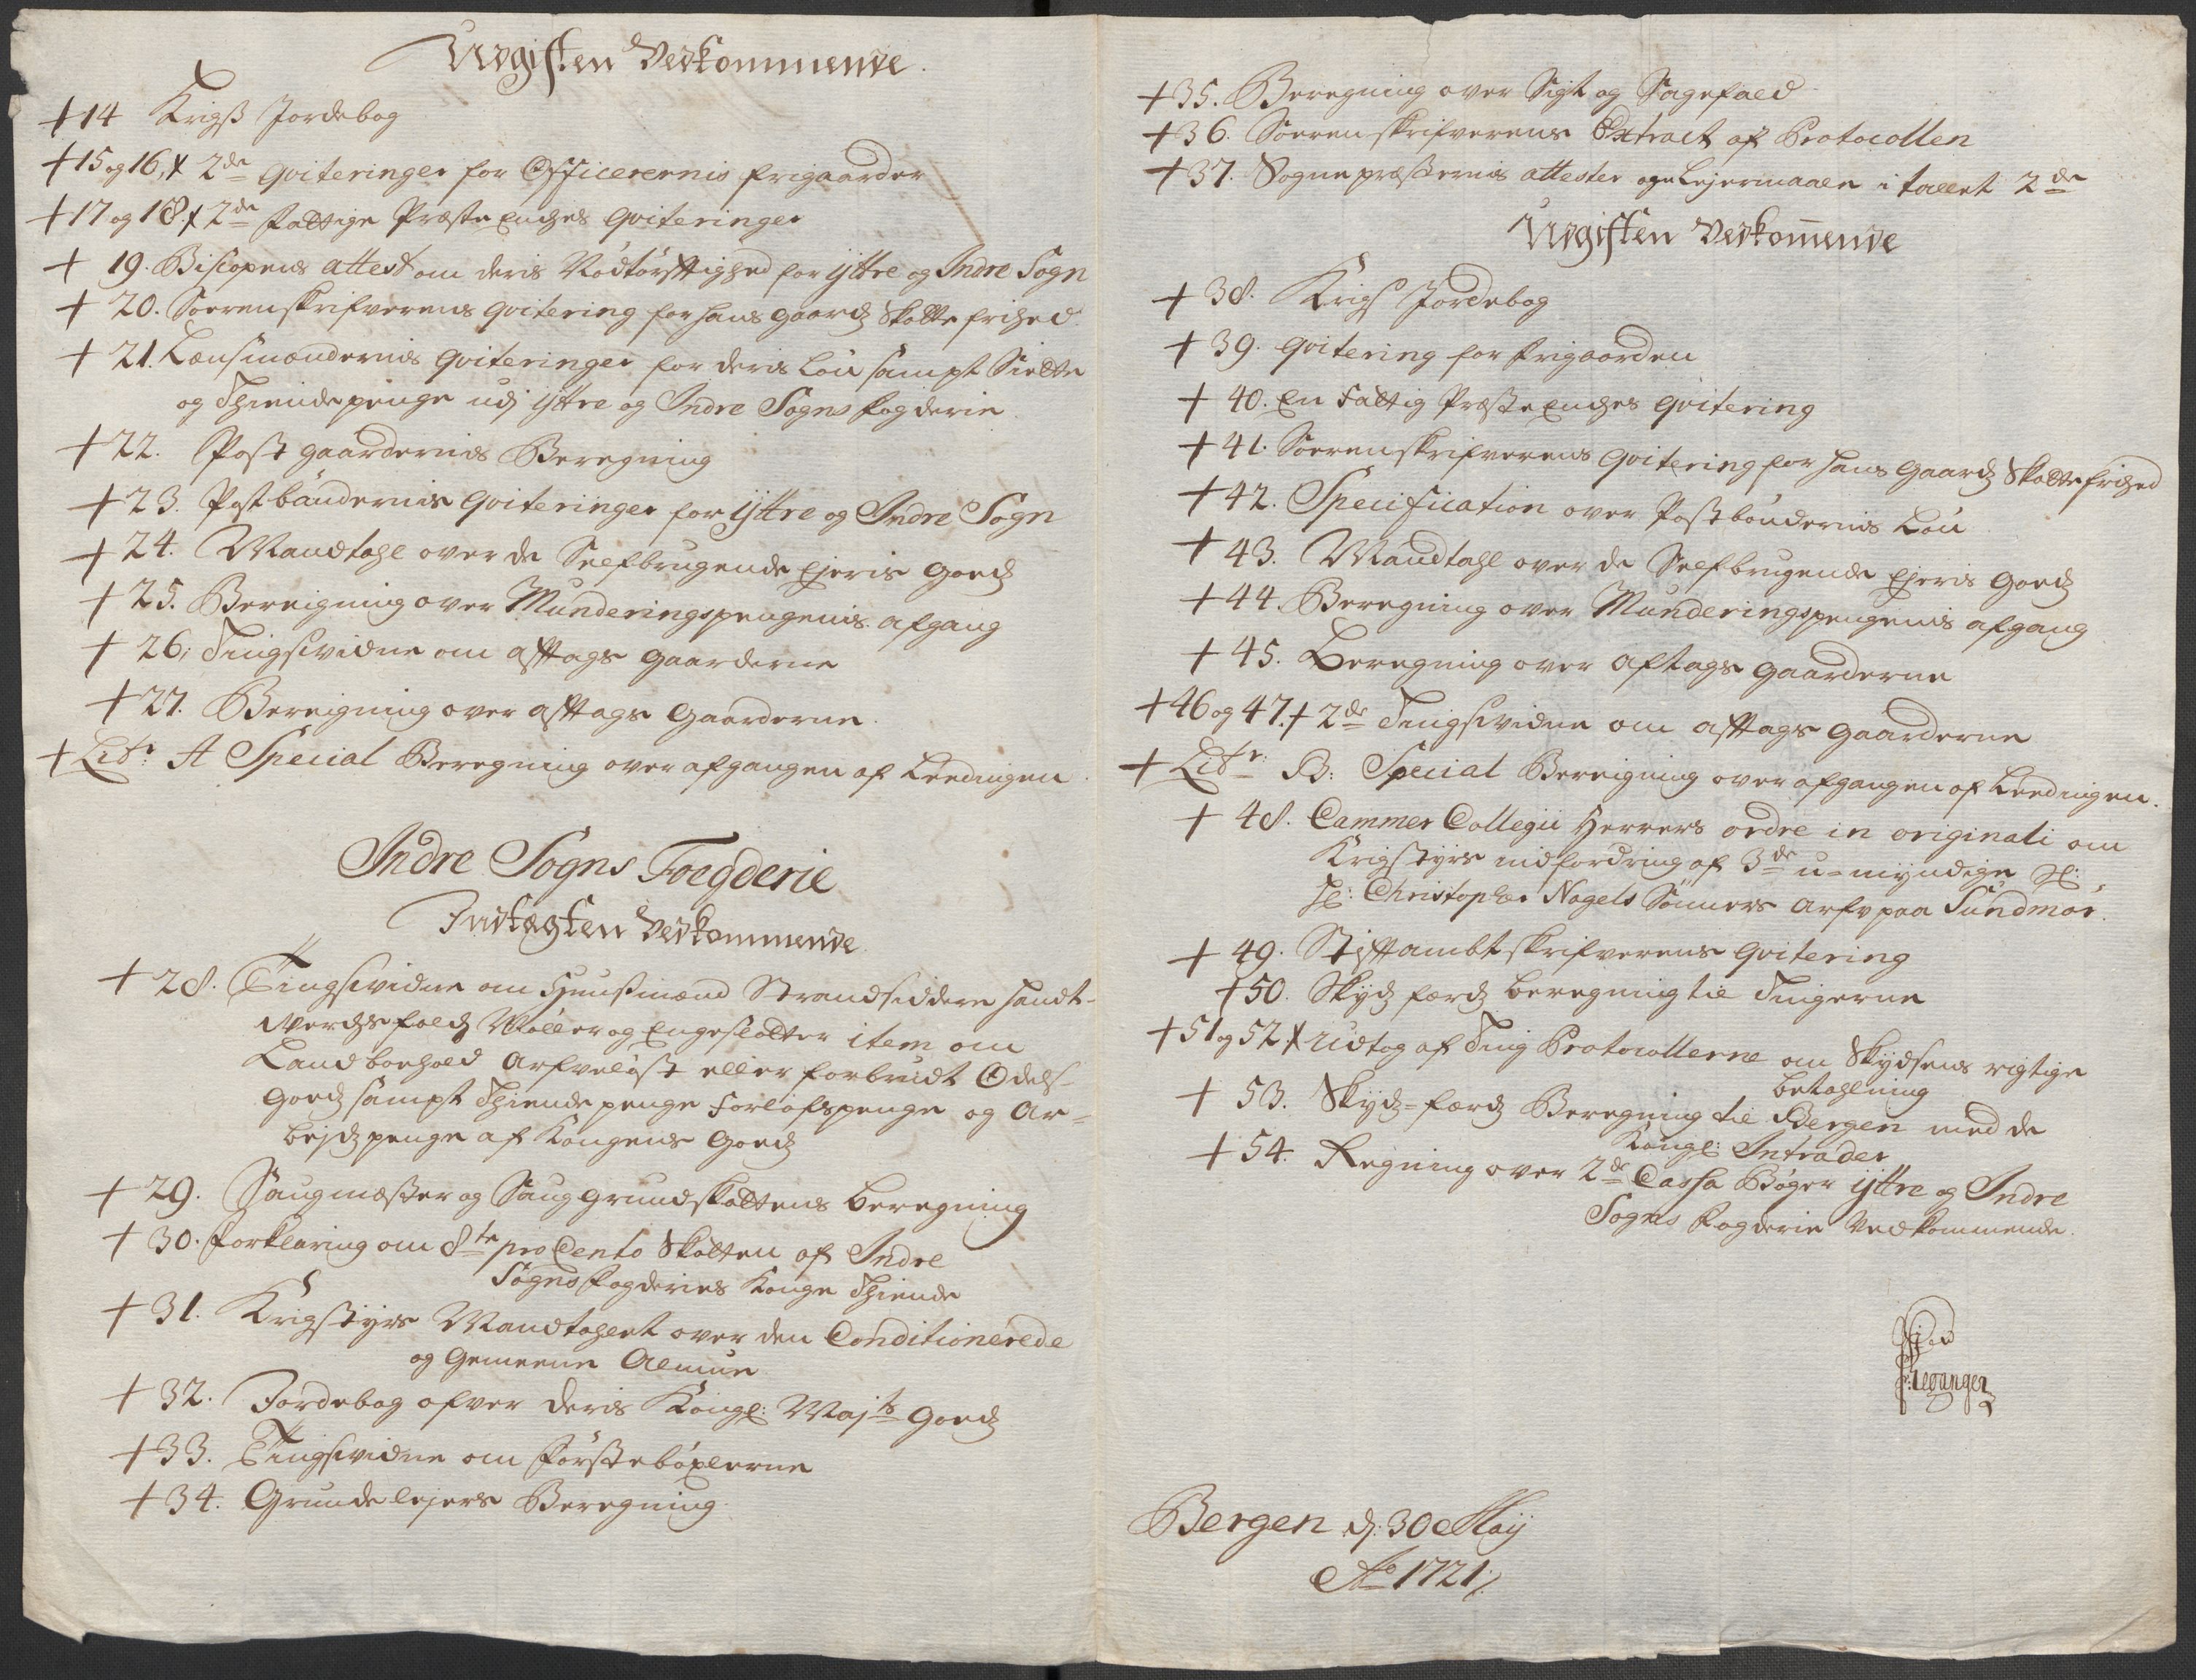 Udgiften Vedkommende.
+14 Krigß Jordebog
+15 og 16,+ 2de qviteringer for Officerernis frigaarder
+17 og 18.+ 2de fattige Præste Enches qviteringer
+ 19. Biscopens attest om deris Nødtørfftighed for ÿttre og Indre Sogn
+ 20. Sorenskrifverens qvitering for hans gaards Skatte frihed.
+ 21. Lænsmændernis qviteringer for deris løn sampt Siette
og Thiende penge udj ÿttre og Indre Sogns fogderie
+ 22. Post gaardernis Beregning
+ 23. Postbøndernis qviteringer for ÿttre og Indre Sogn
+ 24. Mandtahl over de Selfbrugende Ejeris Goeds
+ 25. Bereigning over Munderingspengenis afgang
+ 26. Tingsvidne om afftags gaarderne
+ 27. Bereigning over afftags Gaarderne.
+ Litr: A Special Beregning over afgangen af Leedingen.
Indre Sogns Foegderie
Indtægten Vedkommende
+ 28. Tingsvidne om Huusmænd Strandsiddere Handt-
Verchsfolch Møller og Engeslætter item om
Landboehold Arfveløst eller forbrudt Odels-
Goeds sampt Thiende penge Forlofspenge og Ar-
bejds penge af Kongens Goeds
+ 29. Saugmæster og Saug Grundskattens beregning
+ 30. Forklaring om 8te pro Cento Skatten af Indre
Sogns Fogderies Konge Thiende
+ 31. Krigstÿrs Mandtahlet over den Conditionerede
og Gemeene Almue
+ 32. Jordebog ofver deris Kongl: Majts Goeds
+33. Tingsvidne om Førstebøxlerne
+ 34. Grundelejers Beregning.
+35. Beregning over Sigt og Sagefald
+36. Sorenskrifverens Extract af Protocollen
+37. Sognepræsternis attester om Lejermaalen i tallet 2de
Udgiften Vedkom̅ende
+ 38. Krigs Jordebog
+ 39. qvitering for frigaarden
+ 40. En Fattig Præste Enches qvitering
+ 41. Sorenskrifverens qvitering for hans Gaards Skattefrihed
+ 42. Specification over Postbøndernis Løn
+ 43. Mandtahl over de Selfbrugende Ejeris Goeds
+ 44. Beregning over Munderingspengenis afgang
+ 45. Beregning over aftags gaarderne
+46 og 47.+ 2de Tingsvidne om afftags gaarderne
+ Litr: B: Special Bereigning over afgangen af Leedingen.
+ 48. Cammer Collegii Herrers ordre in originali om
Krigstÿrs indfordring af 3de u-mÿndige Sl:
Hr: Christopher Nagels Sønners Arfv paa Sundmør.
+ 49. Stifftambtskrifverens qvitering
+50. Skÿds færds beregning til Tingerne
+51 og 52 + Udtog af Ting Protocollerne om Skÿdsens rigtige
betahlning
+ 53. Skÿds-færds Beregning til Bergen med de
Kongl: Intrader
+ 54. Regning over 2de Cassa Bøger ÿttre og Indre
Sogns Fogderie Vedkommende.
Bergen d: 30 Maÿ
Ao 1721